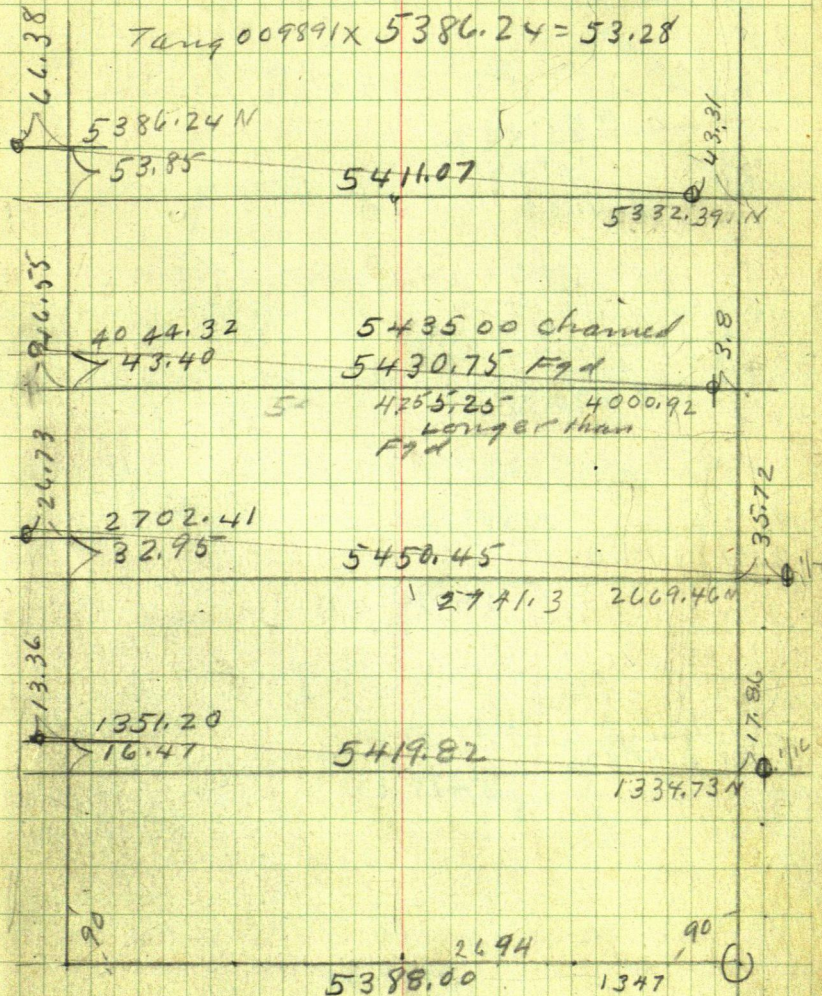 Tang 009891 x 5386.24 = 53.28
66.38
5386.24 N
53.85
5411.07
43.31
5332.39 N
46.55
4044.32
43.40
5435 00 chained
5430.75 Fgd
3.8
4000.92
Longer than
Fgd
26.73
2702.41
32.95
5450.45
35.72
2741.3
2669.46 N
13.36
1351.20
16.47
5419.82
17.86
1/16
1334.73 N
90
2694
90
5388.00
1347